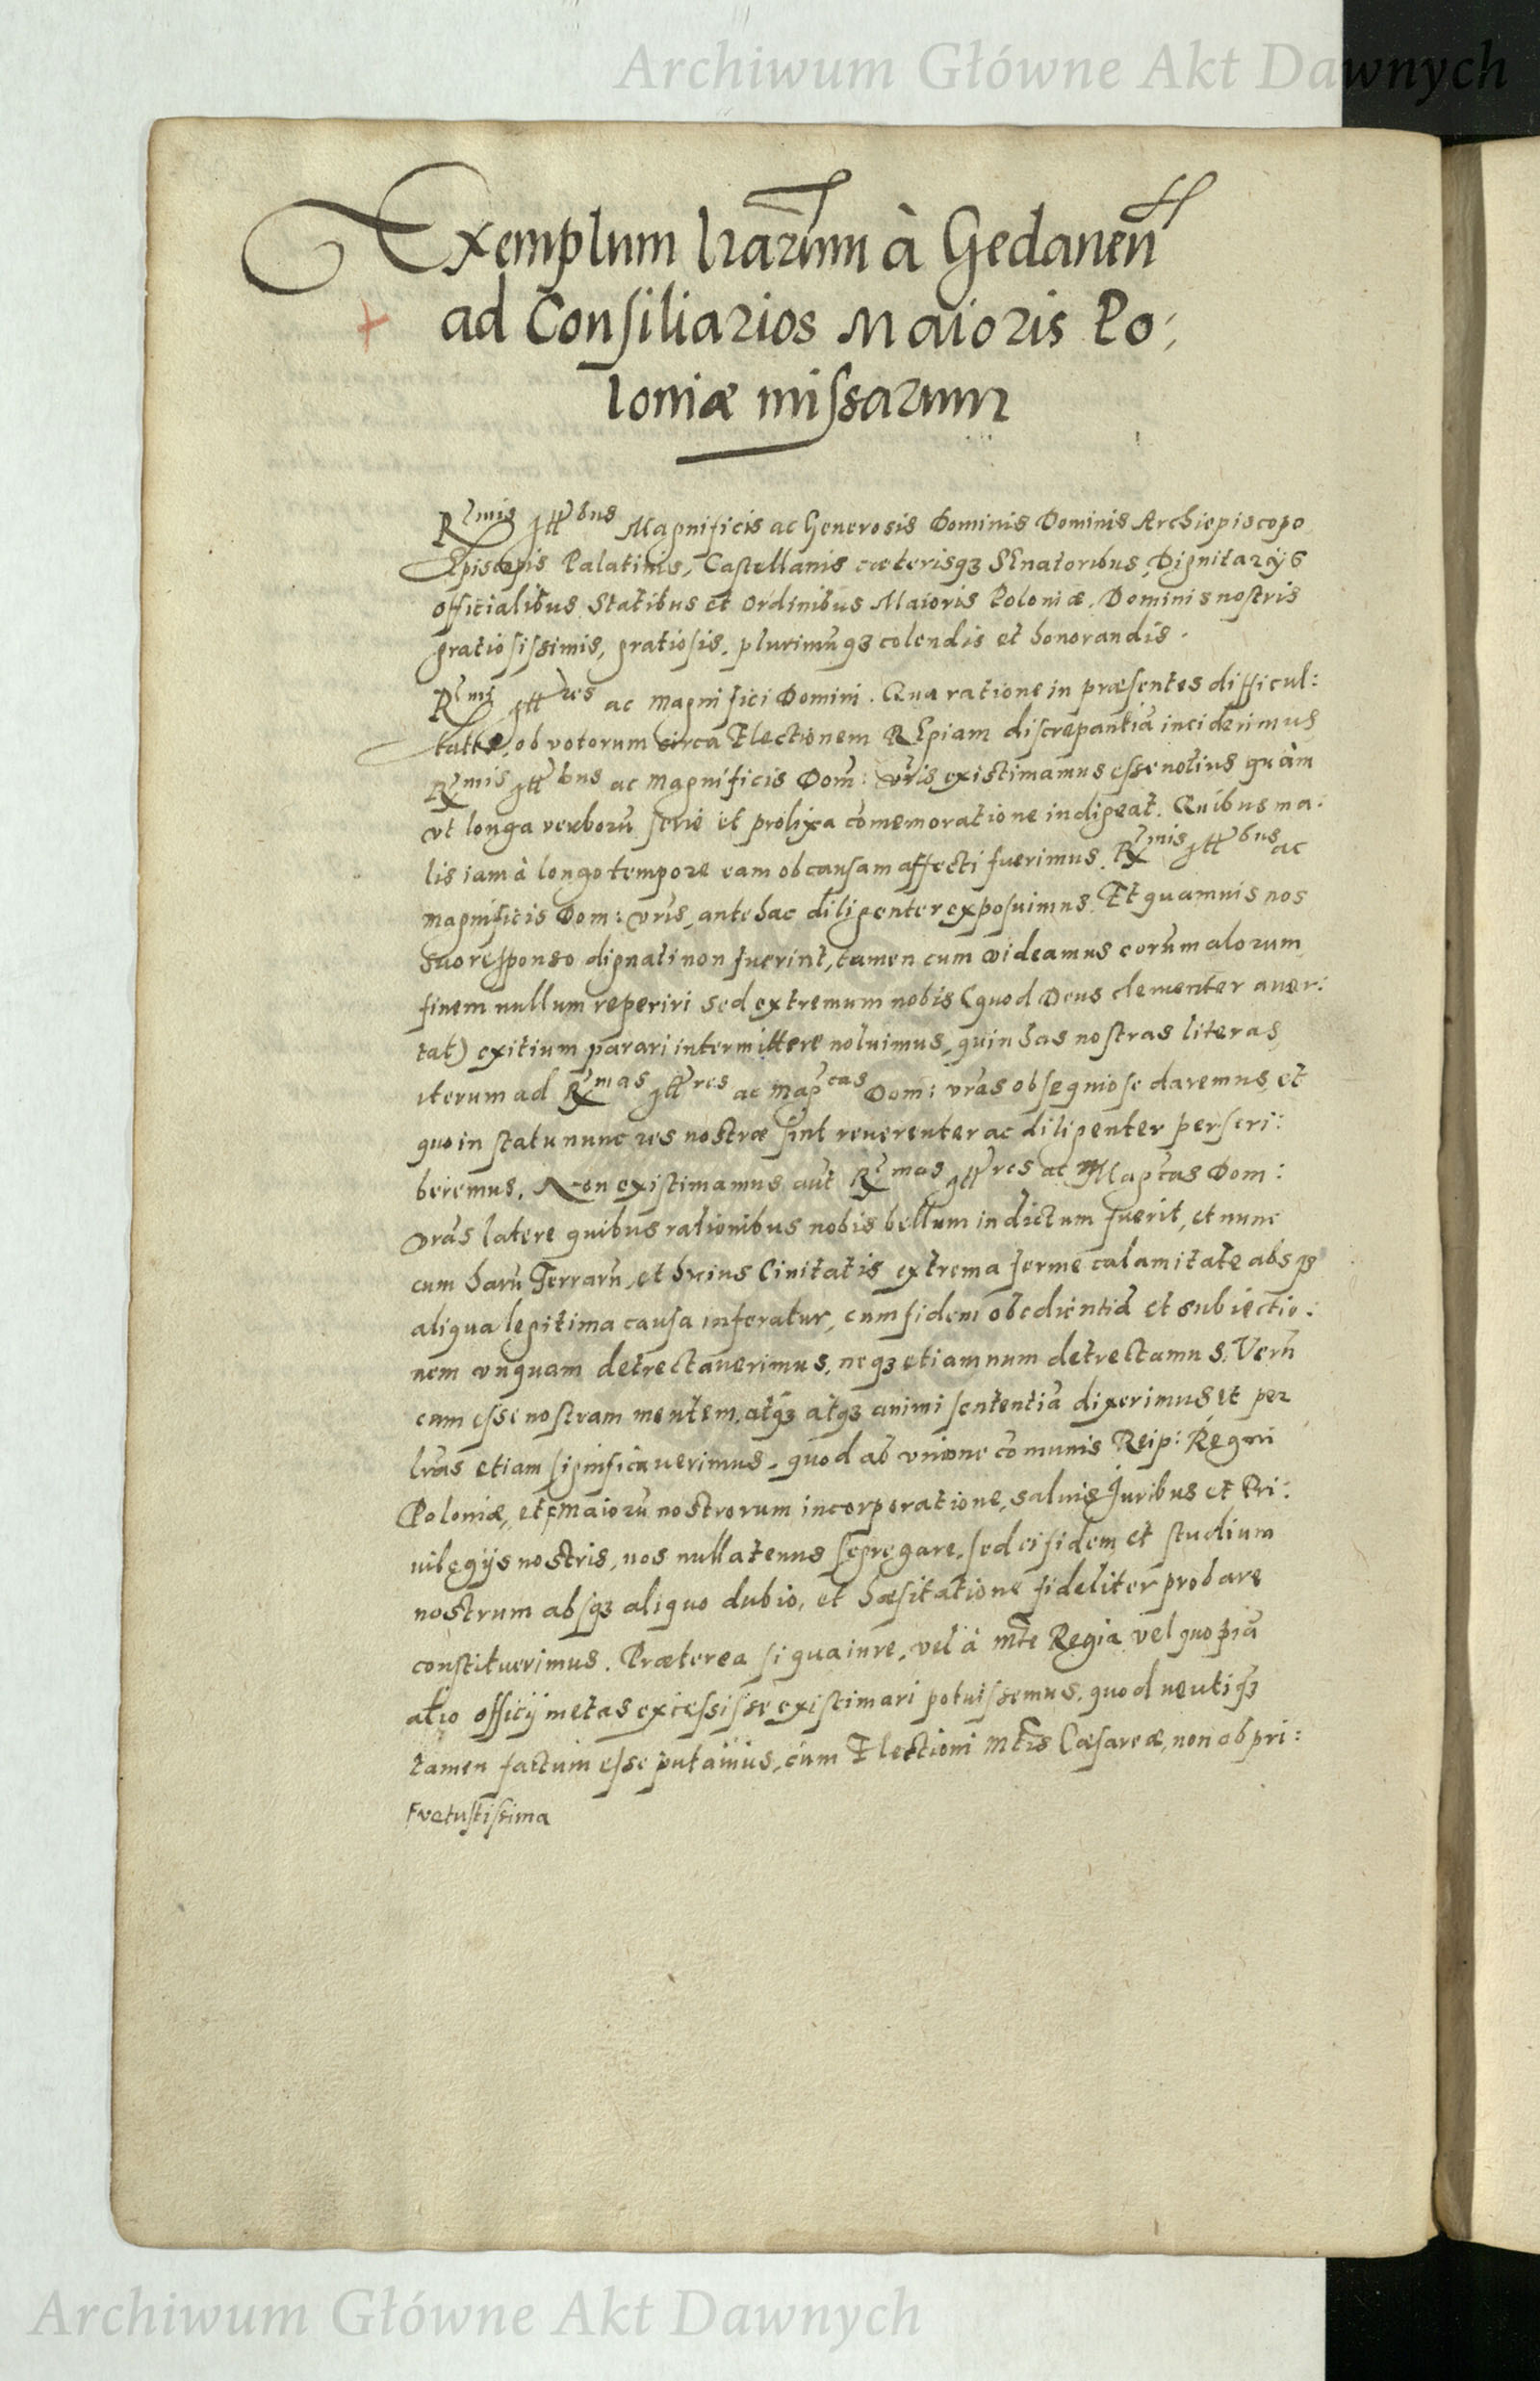 Archiwum Główne Akt Dawnych
Exemplum lrarum à Gedanen
ad Consiliarios Maioris Po:
loniæ missarum
Rmis Illbus Magnificis ac Generosis Dominis Dominis Archiepiscopo
Episcopis Palatinis, Castellanis cæterisqz Senatoribus, Dignitarijs
officialibus Statibus et Ordinibus Maioris Poloniæ. Dominis nostris
gratiosissimis, gratiosis, plurimuqz colendis et honorandis.
Rmi Illres ac magnifici Domini. Qua ratione in præsentes difficul:
tates, ob votorum circa Electionem REgiam discrepantiã inciderimus
Rmis Illbus ac magnificis Dom: vris existimamus esse notius quàm
vt longa verborũ serie et prolixa cõmemoratione indigeat. Quibus ma:
lis iam à longo tempore eam ob causam affecti fuerimus Rmis Illbus ac
magnificis Dom: vris, ante hac diligenter exposuimus. Et quamuis nos
suo responso dignati non fuerint, tamen cum videamus eorum alorum
finem nullum reperiri sed extremum nobis (quod Deus clementer auer:
tat) exitium parari intermittere noluimus, quin has nostras literas
iterum ad Rmas Illres ac Magcas Dom: vras obsequiose daremus et
quo in statu nunc res nostræ sint reuerenter ac diligenter perscri:
beremus. Non existimamus aut Rmas Illres ac Magcas Dom:
vras latere quibus rationibus nobis bellum indictum fuerit, et nunc
cum harũ Terrarũ, et huius Ciuitatis extrema ferme calamitate absqz
aliqua legitima causa inferatur, cum fidem obedientiã et subiectio:
nem vnquam detrectauerimus, neqz etiamnum detrectamus. Verũ
eam esse nostram mentem, atqz atqz animi sententiã dixerimus et per
lras etiam significauerimus, quod ab vnione cõmunis Reip: Regni
Poloniæ, et Ϝ maiorũ nostrorum incorporatione, saluis Juribus et Pri:
uilegijs nostris, nos nullatenus segregare, sed ei fidem et studium
nostrum absqz aliquo dubio, et hæsitatione fideliter probare
constituerimus. Præterea si qua in re, vel à Mte Regia vel quopiã
alio officij metas excessisse existimari potuissemus, quod neutiqz
tamen factum esse putamus, cum Electioni Mtis Cæsareæ, non ob pri:
Ϝ vetustissima
Archiwum Główne Akt Dawnych